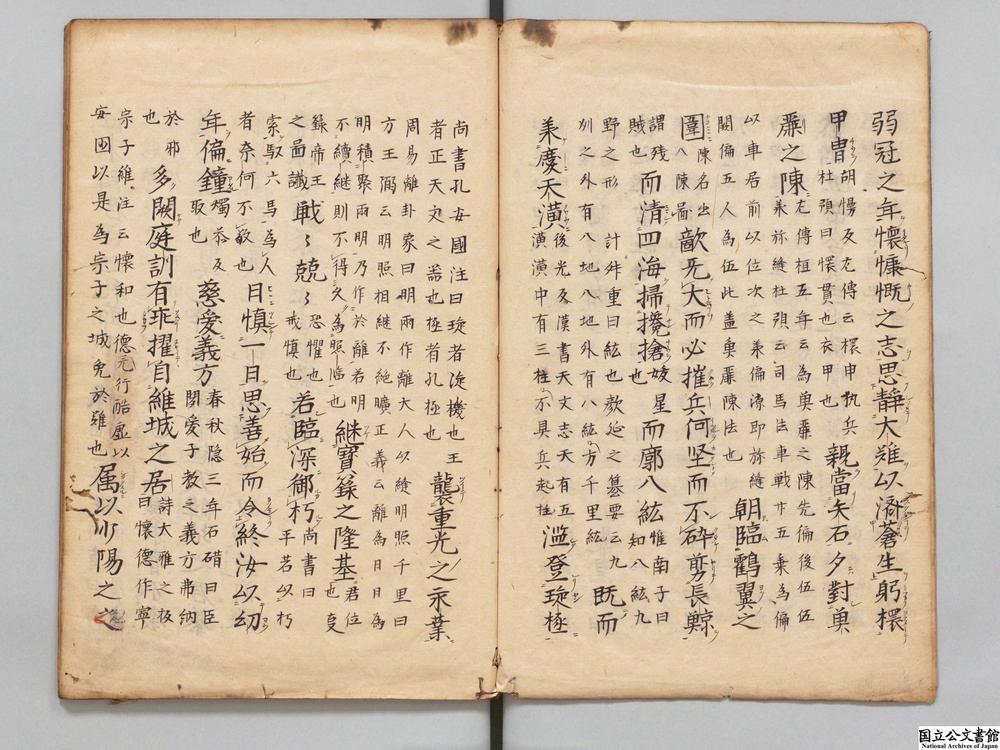 弱冠之年懷慷慨之志思靜大難以濟蒼生躬擐
甲冑胡慢反左傳云擐申執兵
杜預曰擐貫也衣甲也親當矢石夕對魚
麗之陳左傳桓五年云為魚麗之陳先偏後伍伍
承弥縫杜預云司馬法車戰廿五乘為偏
以車居前以伍次之承偏隙即弥縫
闕偏五人為伍此蓋魚麗陳法也朝臨鸛翼之
圍陳名出
八陳啚敵无大而必摧兵何坚而不碎剪長鯨
謂残
賊也而清四海掃攙搶妖星
也而廓八紘惟南子曰
知八紘九
野之形計舛重曰紘也歎延之墓要云九
州之外有八地八地外有八紘方千里紘既而
承慶天潢後光反漢書天文志天有五
潢潢中有三柱不具兵起柱濫登琁極
尚書孔安國注曰琁者淀機也王
者正天文之器也極者孔極也襲重光之永葉
周易離卦象曰明兩作離大人以継明照千里曰
方王溺云明照相継不絶曠正義云離為日日為
明積聚兩明乃作於離若明
不續継則不得久為照臨也継寶籙之隆基君位
也
籙帝王
之啚讖戰〻兢〻恐懼也
戒慎也若臨深御朽尚書曰
平若以朽
索馭六馬為人
者奈何不敬也日慎一日思善始而令終汝以幼
年偏鐘燭恭反
聚也慈愛義方春秋隱三年石碏曰臣
聞愛子教之義方弗納
於邪
也多闕庭訓有乖擢自維城之居詩大雅之板
曰懷德作寧
宗子維注云懷和也德元行酷虐以
安國以是為宗子之城免於難也属以少陽之之
国立公文書館
National Archives of Japan